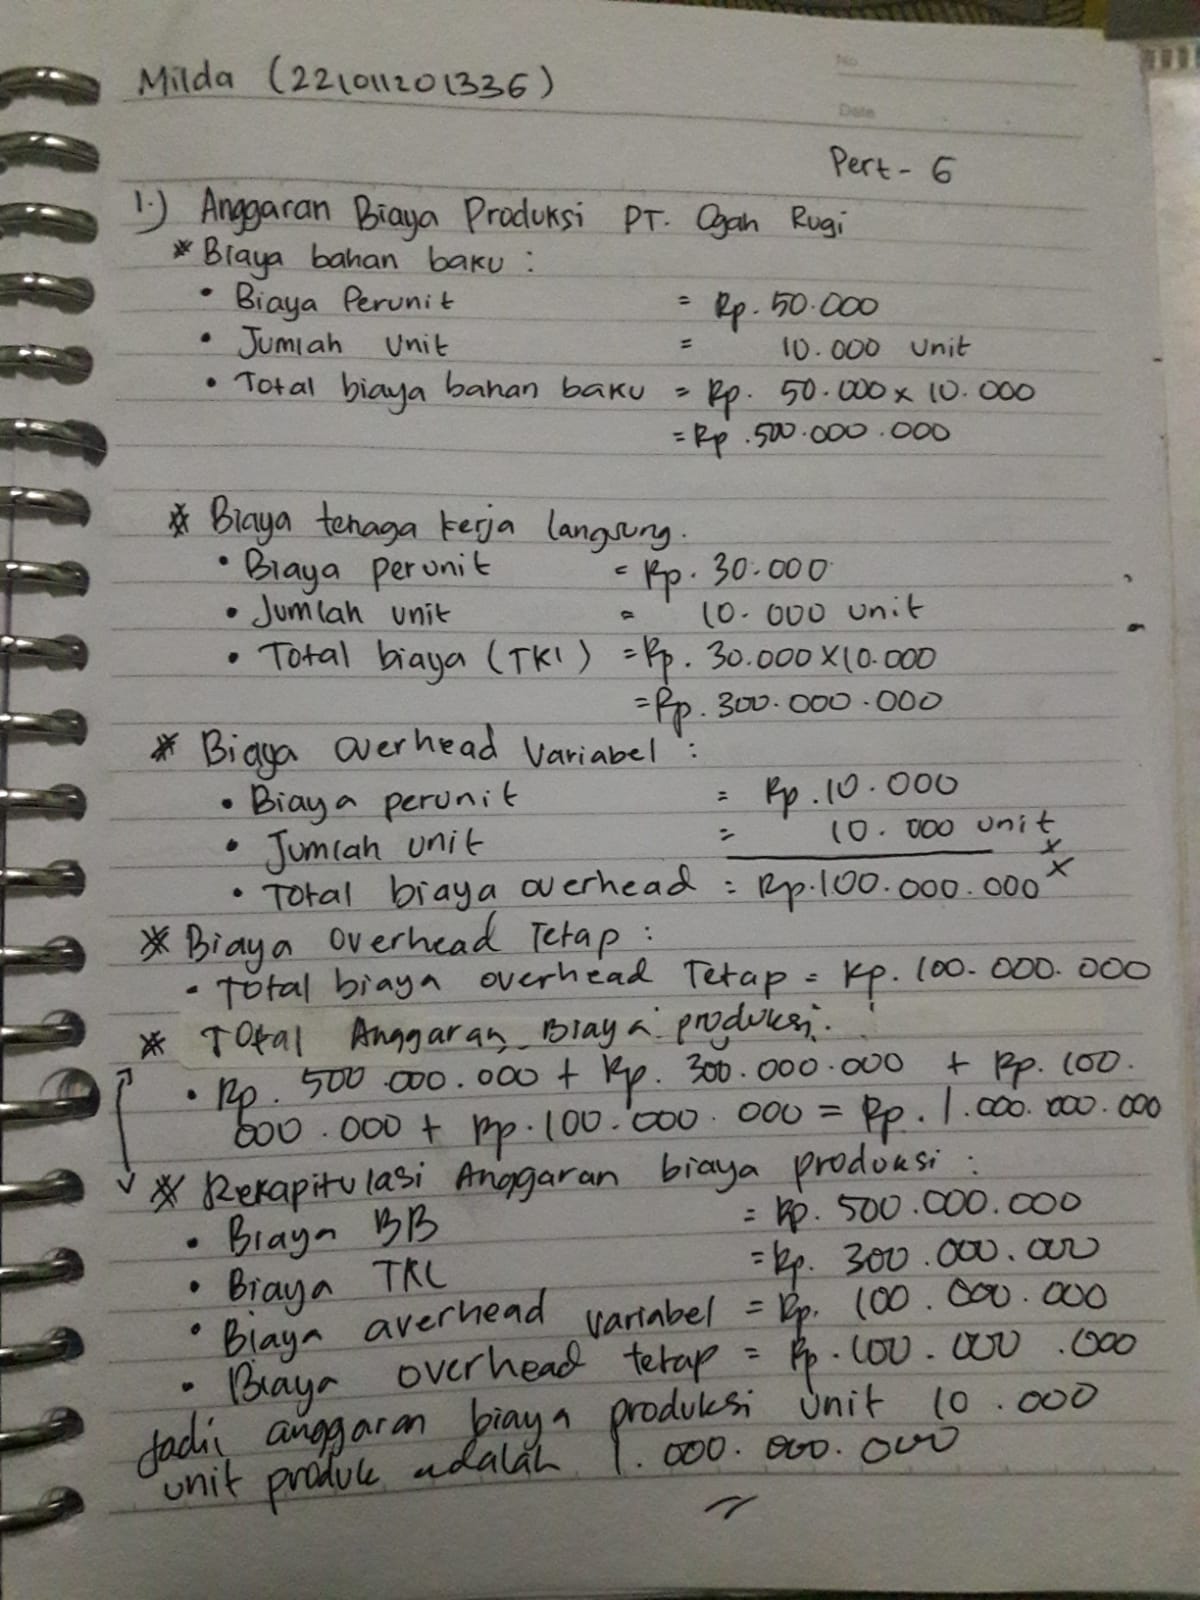 No
Date
Milda (221011201336)
Pert - 6
1.) Anggaran Biaya Produksi PT. Ogah Rugi
* Biaya bahan baku :
• Biaya Perunit = Rp. 50.000
• Jumlah Unit = 10.000 Unit
• Total biaya bahan baku = Rp. 50.000 x 10.000
= Rp .500.000.000
* Biaya tenaga kerja langsung.
• Biaya perunit = Rp. 30.000
• Jumlah unit = 10.000 unit
• Total biaya (TKl) = Rp. 30.000 x 10.000
= Rp. 300.000.000
* Biaya overhead Variabel :
• Biaya perunit = Rp.10.000
• Jumlah unit = 10.000 unit x
• Total biaya overhead = Rp.100.000.000 x
* Biaya Overhead Tetap :
• Total biaya overhead Tetap = Rp. 100.000.000
* Total Anggaran Biaya produksi.
• Rp. 500.000.000 + Rp. 300.000.000 + Rp. 100.
000.000 + Rp.100.000.000 = Rp. 1.000.000.000
* Rekapitulasi Anggaran biaya produksi :
• Biaya BB = Rp. 500.000.000
• Biaya TKL = Rp. 300.000.000
• Biaya averhead variabel = Rp. 100.000.000
• Biaya overhead tetap = Rp.100.000.000
Jadi anggaran biaya produksi unit 10.000
unit produk adalah 1.000.000.000